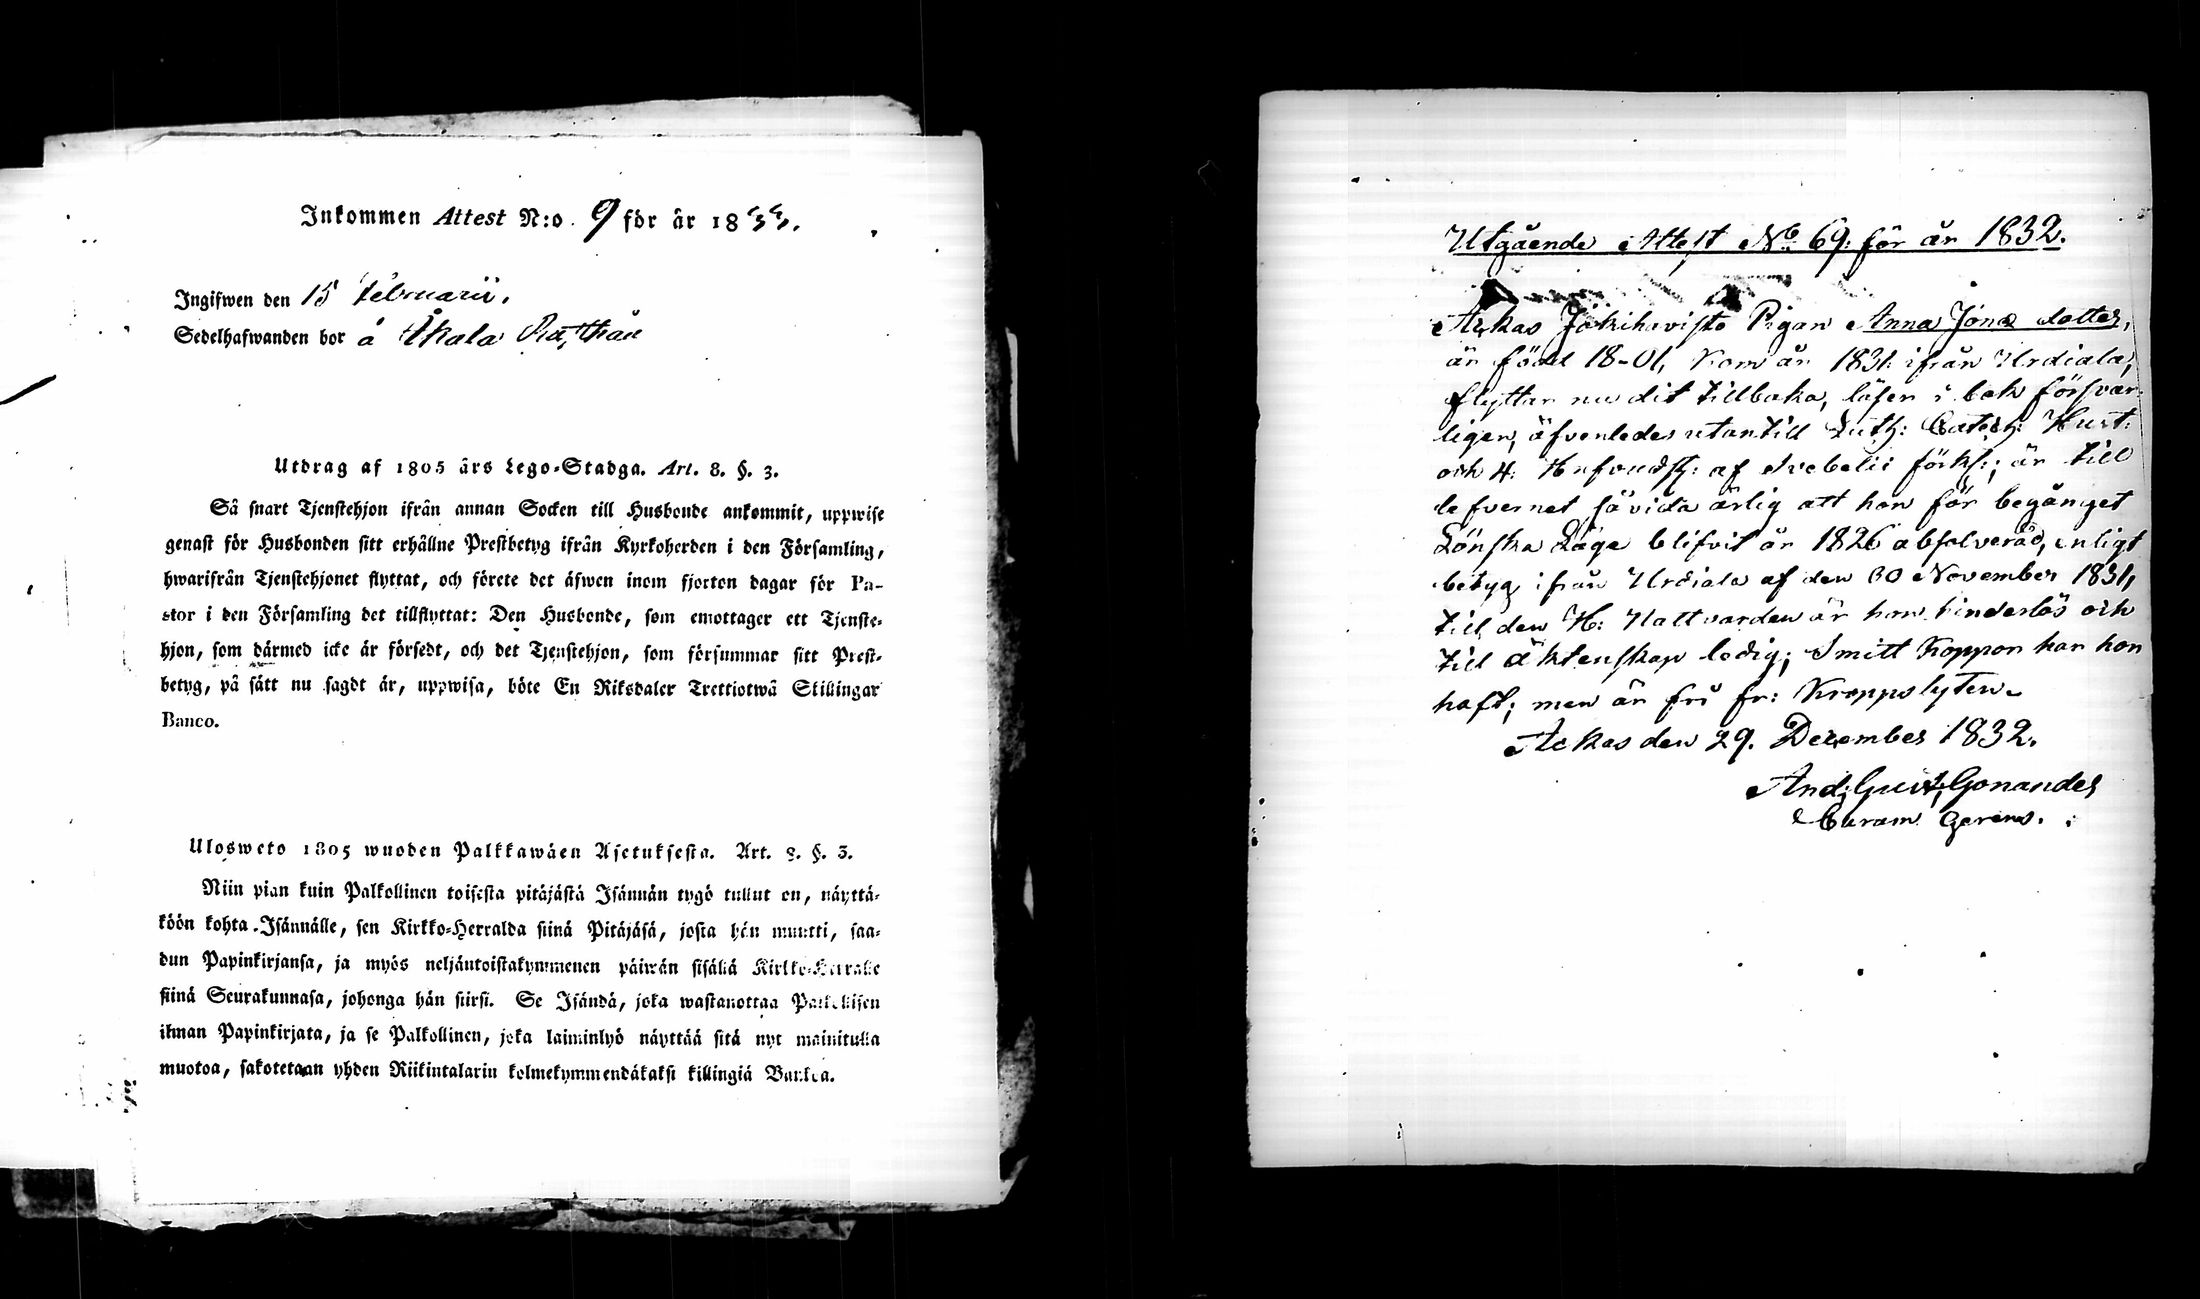 Inkommen Attest N:o. 9 för år 1833.
Ingifwen den 15 Februarii.
Sedelhafwanden bor å Åkala
Utdrag af 1805 års Lego-Stadga. Art. 8. §. 3.
Så snart Tjenstehjon ifrån annan Socken till Husbonde ankommit, uppwise
genast för Husbonden sitt erhållne Prestbetyg ifrån Kyrkoherden i den Församling,
hwarifrån Tjenstehjonet flyttat, och förete det äfwen inom fjorton dagar för Pa-
stor i den Församling det tillflyttat: Den Husbonde, som emottager ett Tjenste-
hjon, som därmed icke är försedt, och det Tjenstehjon, som försummar sitt Prest-
betyg, på sätt nu sagdt är, uppwisa, böte En Riksdaler Trettiotwå Skillingar
Banco.
Ulosweto 1805 wuoden Palkkawäen Asetuksesta. Art. 8. §. 3.
Niin pian kuin Palkollinen toisesta pitäjästä Isännän tygö tullut on, näyttä-
köön kohta Isännälle, sen Kirkko-Herralda siinä Pitäjäsä, josta hän muutti, saa-
dun Papinkirjansa, ja myös neljäntoistakymmenen päiwän sisällä Kirkko-Herralle
siinä Seurakunnasa, johonga hän siirsi. Se Isändä, joka wastanottaa Palkollisen
ilman Papinkirjata, ja se Palkollinen, joka laiminlyö näyttää sitä nyt mainitulla
muotoa, sakotetaan yhden Riikintalarin kolmekymmendäkaksi killingiä Bankoa.
Utgående Attest No. 69. för år 1832.
Ackas Jokihaviste Pigan Anna Jonæ dotter,
är född 18-01, kom år 1831 ifrån Urdiala,
flyttar nu dit tillbaka, läser i bok försvar-
ligen, äfvenledes utantill Luth: Catech: Hust:
och H: af Svebelii förkl:; är till
lefvernet såvida ärlig att hon för begånget
Lönska Läge blifvit år 1826 absolverad, enligt
betyg ifrån Urdiala af den 30 November 1831,
till den H: Nattvarden är hon hinderlös och
till äktenskap ledig; Smitt koppor har hon
haft; men är fri fr: Kroppslyten.
Ackas den 29. December 1832.
And: Gust: Gonander
Curam gerens.